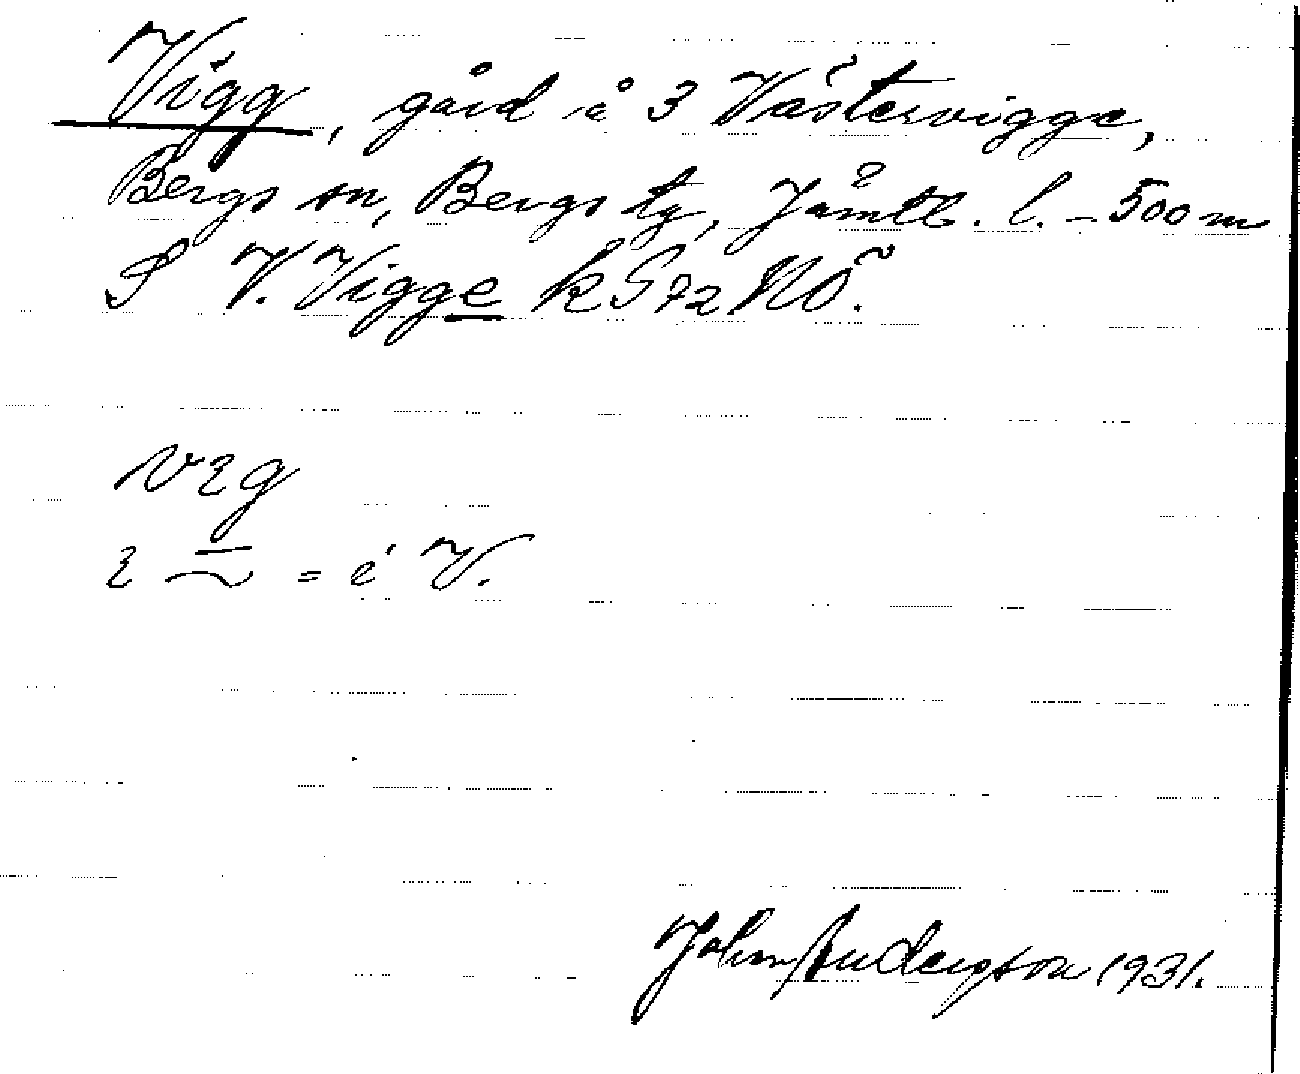 Vigg, gård å 3 Västervigge,
Bergs sn, Bergs tg, Jämtl. l. – 500 m
S V. Vigge k G 72 NÖ.
vıg
ı = é V.
John Anderson 1931.